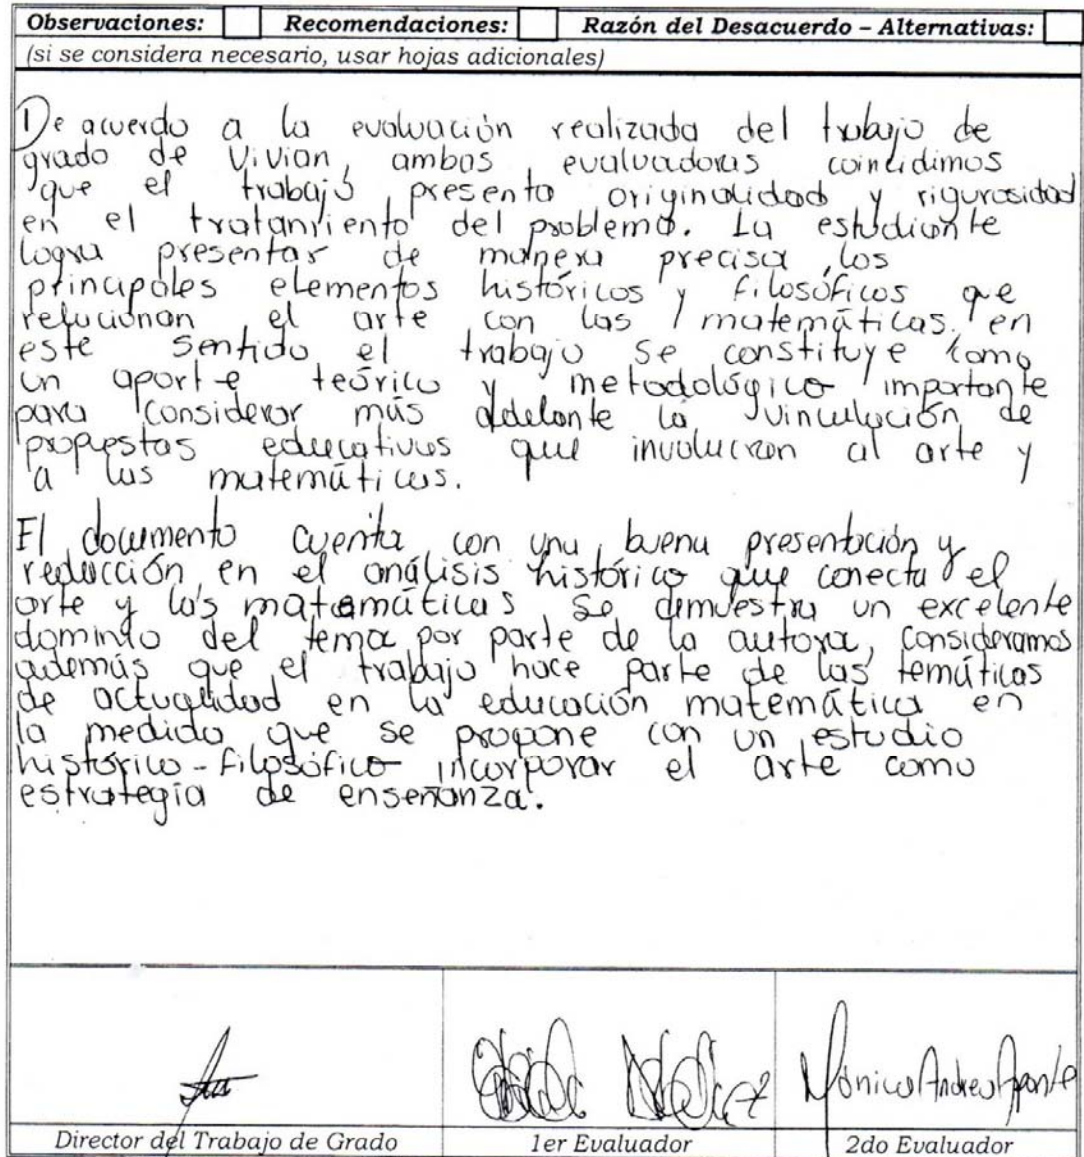 Observaciones: Recomendaciones: Razón del Desacuerdo – Alternativas:
(si se considera necesario, usar hojas adicionales)
De acuerdo a la evaluación realizada del trabajo de
grado de Vivian, ambas evaluadoras coincidimos
que el trabajo presenta originalidad y rigurosidad
en el tratamiento del problema. La estudiante
logra presentar de manera precisa los
principales elementos históricos y filosóficos que
relacionan el arte con las matemáticas, en
este sentido el trabajo se constituye como
un aporte teórico y metodológico importante
para considerar más adelante la vinculación de
propuestas educativas que involucran al arte y
a las matemáticas.
El documento cuenta con una buena presentación y
redacción, en el análisis histórico que conecta el
arte y las matemáticas se demuestra un excelente
dominio del tema por parte de la autora, consideramos
además que el trabajo hace parte de las temáticas
de actualidad en la educación matemática en
la medida que se propone con un estudio
histórico-filosófico incorporar el arte como
estrategia de enseñanza.
Mónica Andrea Aponte
Director del Trabajo de Grado 1er Evaluador 2do Evaluador